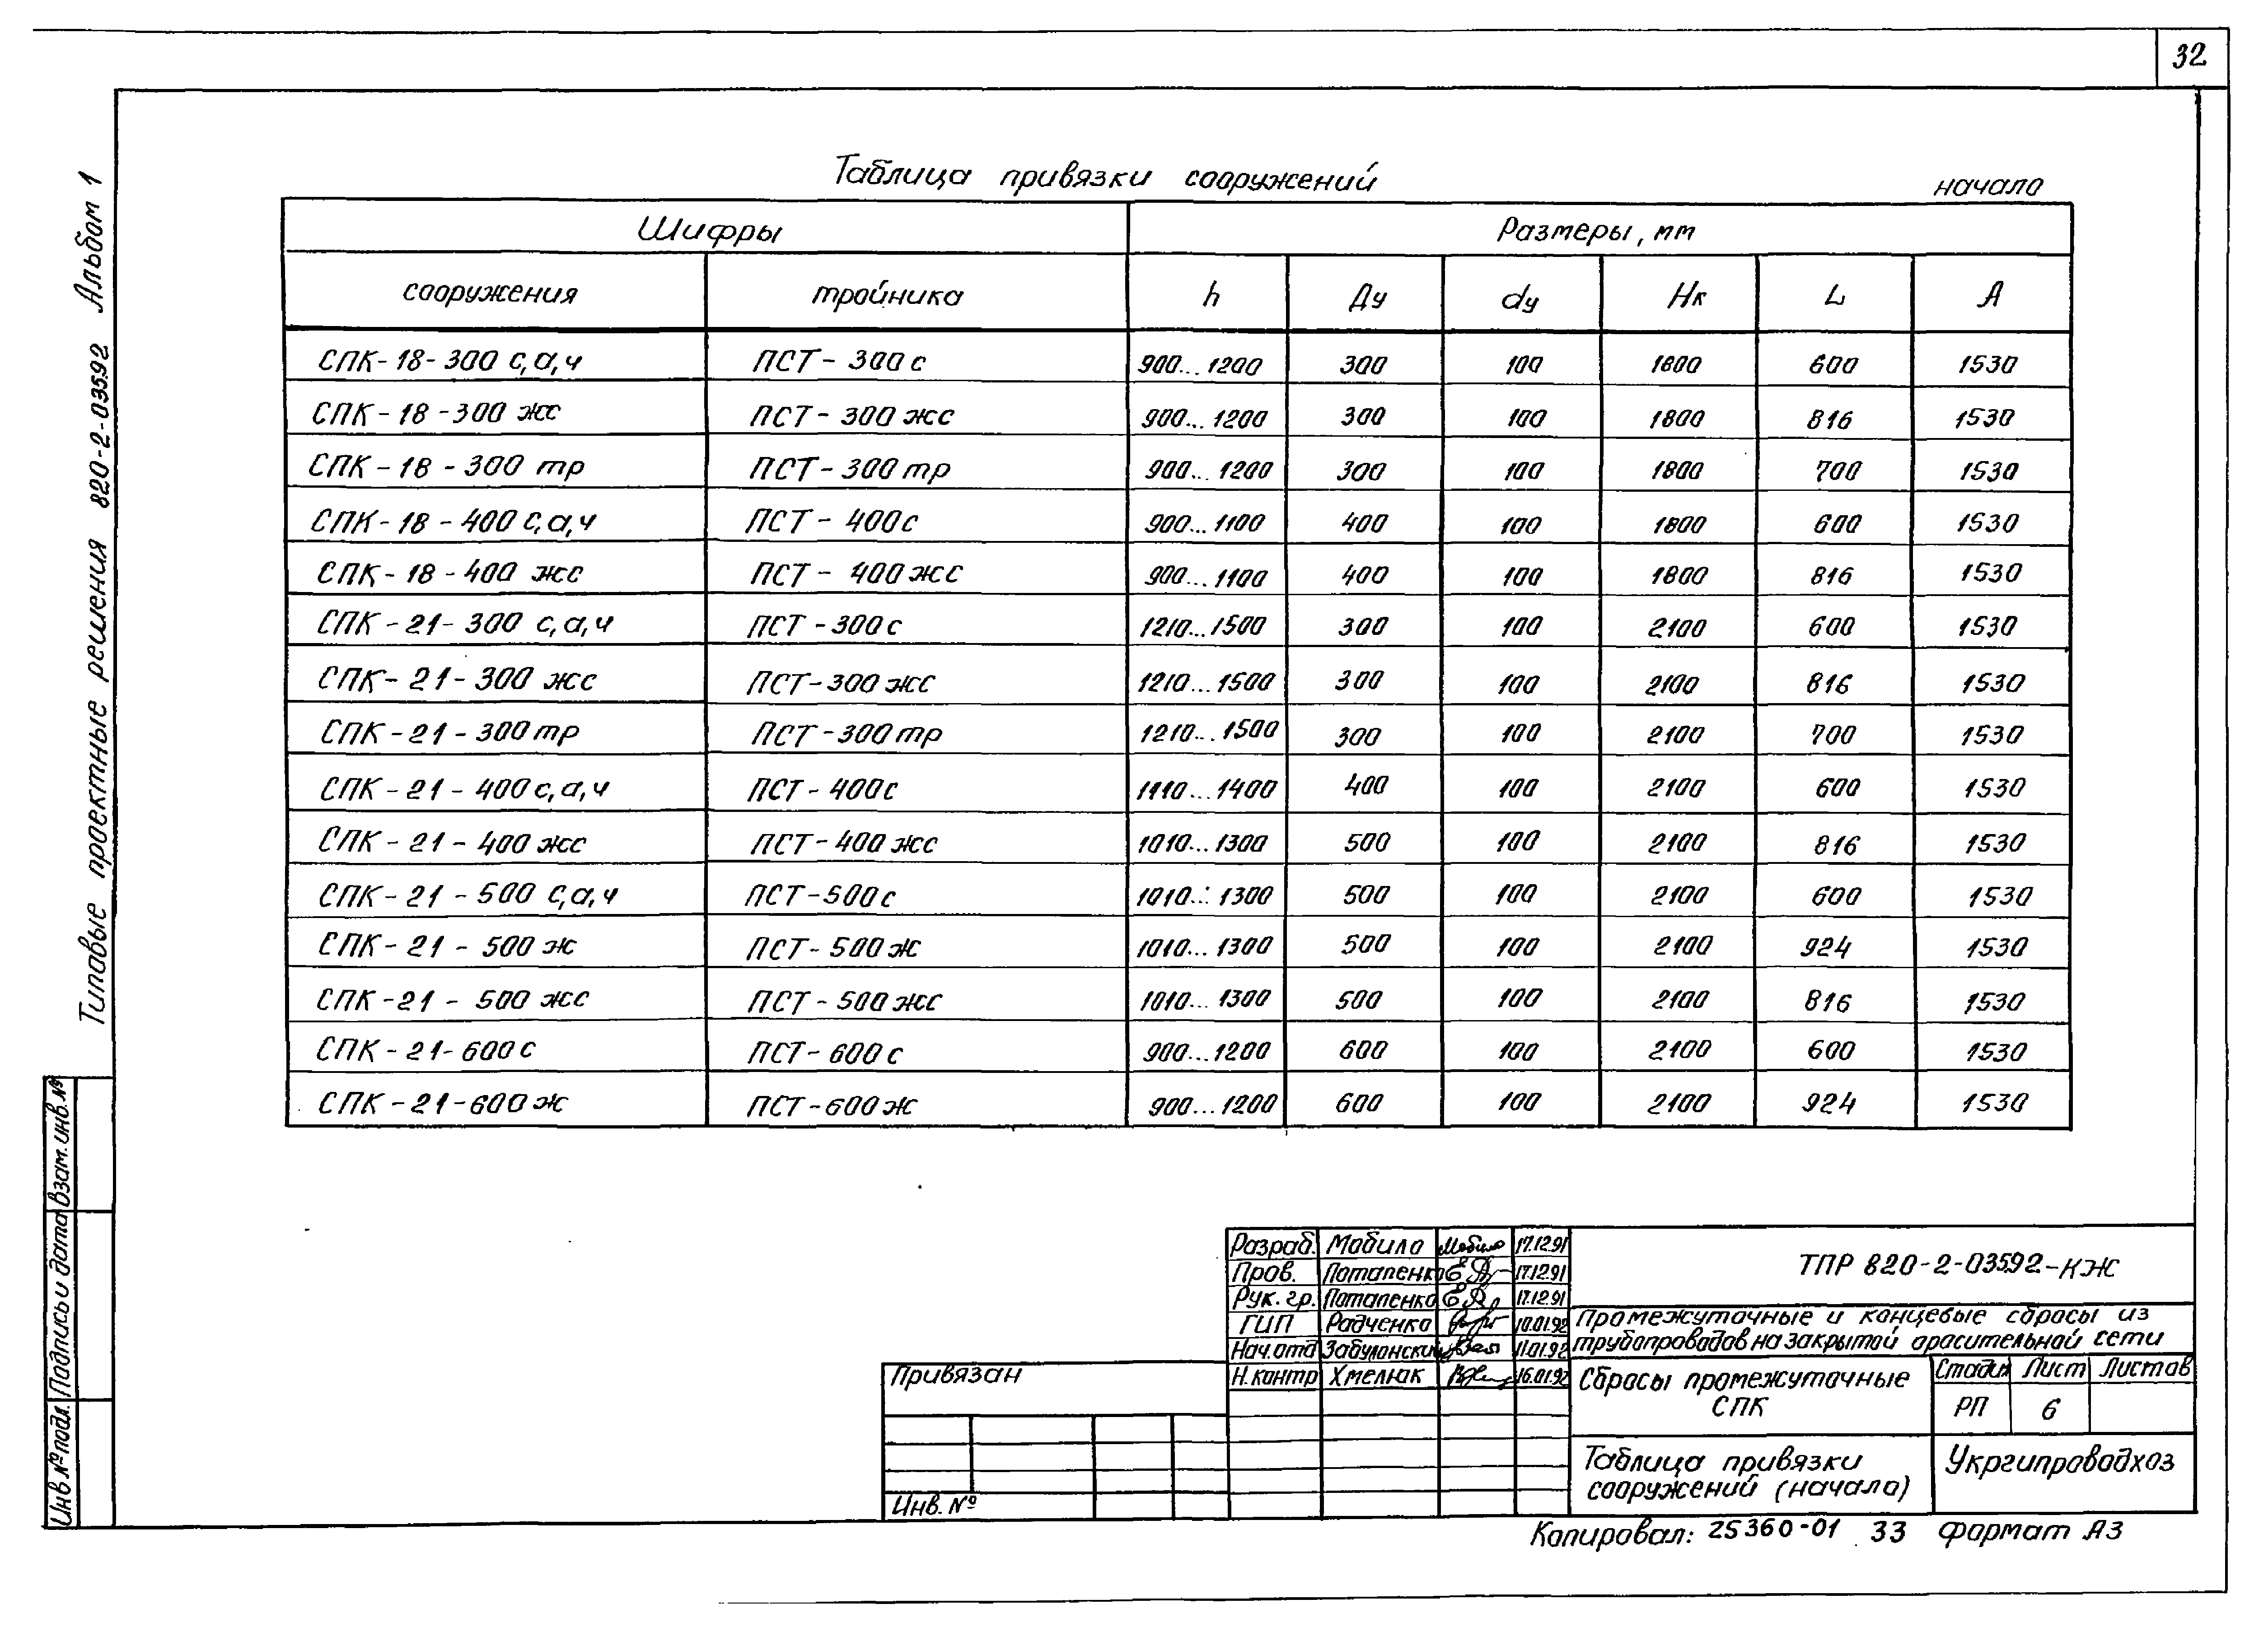 32
Типовые проектные решения 820-2-03592 Альбом 1
Таблица привязки сооружений
начало
Шифры Размеры, мм
сооружения тройника h Ду dу Нк L А
СПК-18-300 с,а,ч ПСТ-300с 900...1200 300 100 1800 600 1530
СПК-18-300 жс ПСТ-300жс 900...1200 300 100 1800 816 1530
СПК-18-300 тр ПСТ-300тр 900...1200 300 100 1800 700 1530
СПК-18-400 с,а,ч ПСТ-400с 900...1100 400 100 1800 600 1530
СПК-18-400 жс ПСТ-400жс 900...1100 400 100 1800 816 1530
СПК-21-300 с,а,ч ПСТ-300с 1210...1500 300 100 2100 600 1530
СПК-21-300 жс ПСТ-300жс 1210...1500 300 100 2100 816 1530
СПК-21-300тр ПСТ-300тр 1210...1500 300 100 2100 700 1530
СПК-21-400с,а,ч ПСТ-400с 1110...1400 400 100 2100 600 1530
СПК-21-400жс ПСТ-400жс 1010...1300 500 100 2100 816 1530
СПК-21-500 с,а,ч ПСТ-500с 1010...1300 500 100 2100 600 1530
СПК-21-500ж ПСТ-500ж 1010...1300 500 100 2100 924 1530
СПК-21-500 жс ПСТ-500жс 1010...1300 500 100 2100 816 1530
СПК-21-600с ПСТ-600с 900...1200 600 100 2100 600 1530
СПК-21-600ж ПСТ-600ж 900...1200 600 100 2100 924 1530
Взам.инв.№
Подпись и дата
Инв.№подл.
Разраб. Мобило Мобило 17.12.91
Пров. Потапенко 17.12.91
Рук. гр. Потапенко 17.12.91
ГИП Радченко 10.01.92
Нач.отд Забулонский 11.01.92
Н.контр Хмелюк 16.01.92
ТПР 820-2-03592-КЖ
Промежуточные и концевые сбросы из
трубопроводов на закрытой оросительной сети
Привязан
Инв.№
Сбросы промежуточные
СПК
Стадия Лист Листов
РП 6
Таблица привязки
сооружений (начало)
Укргипроводхоз
Копировал: 25360-01 33 формат А3